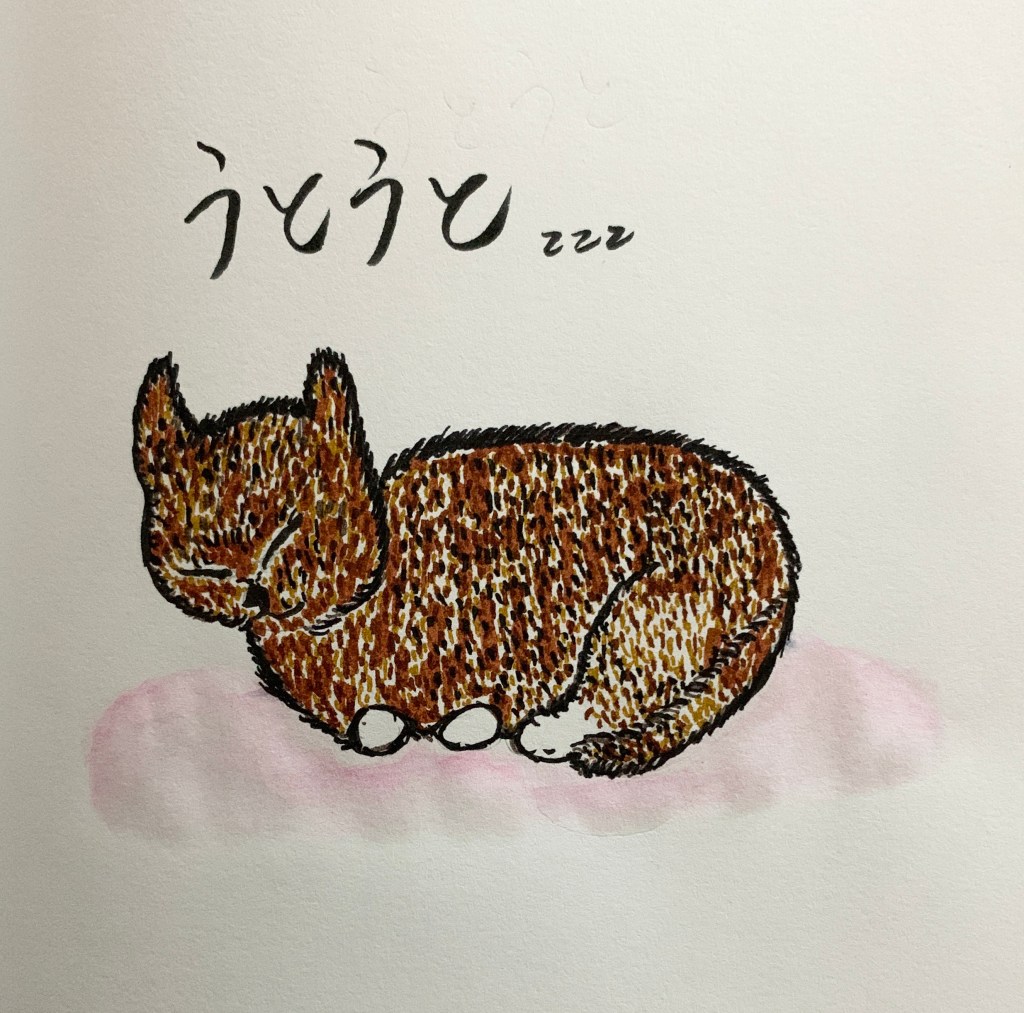 うとうと zzz